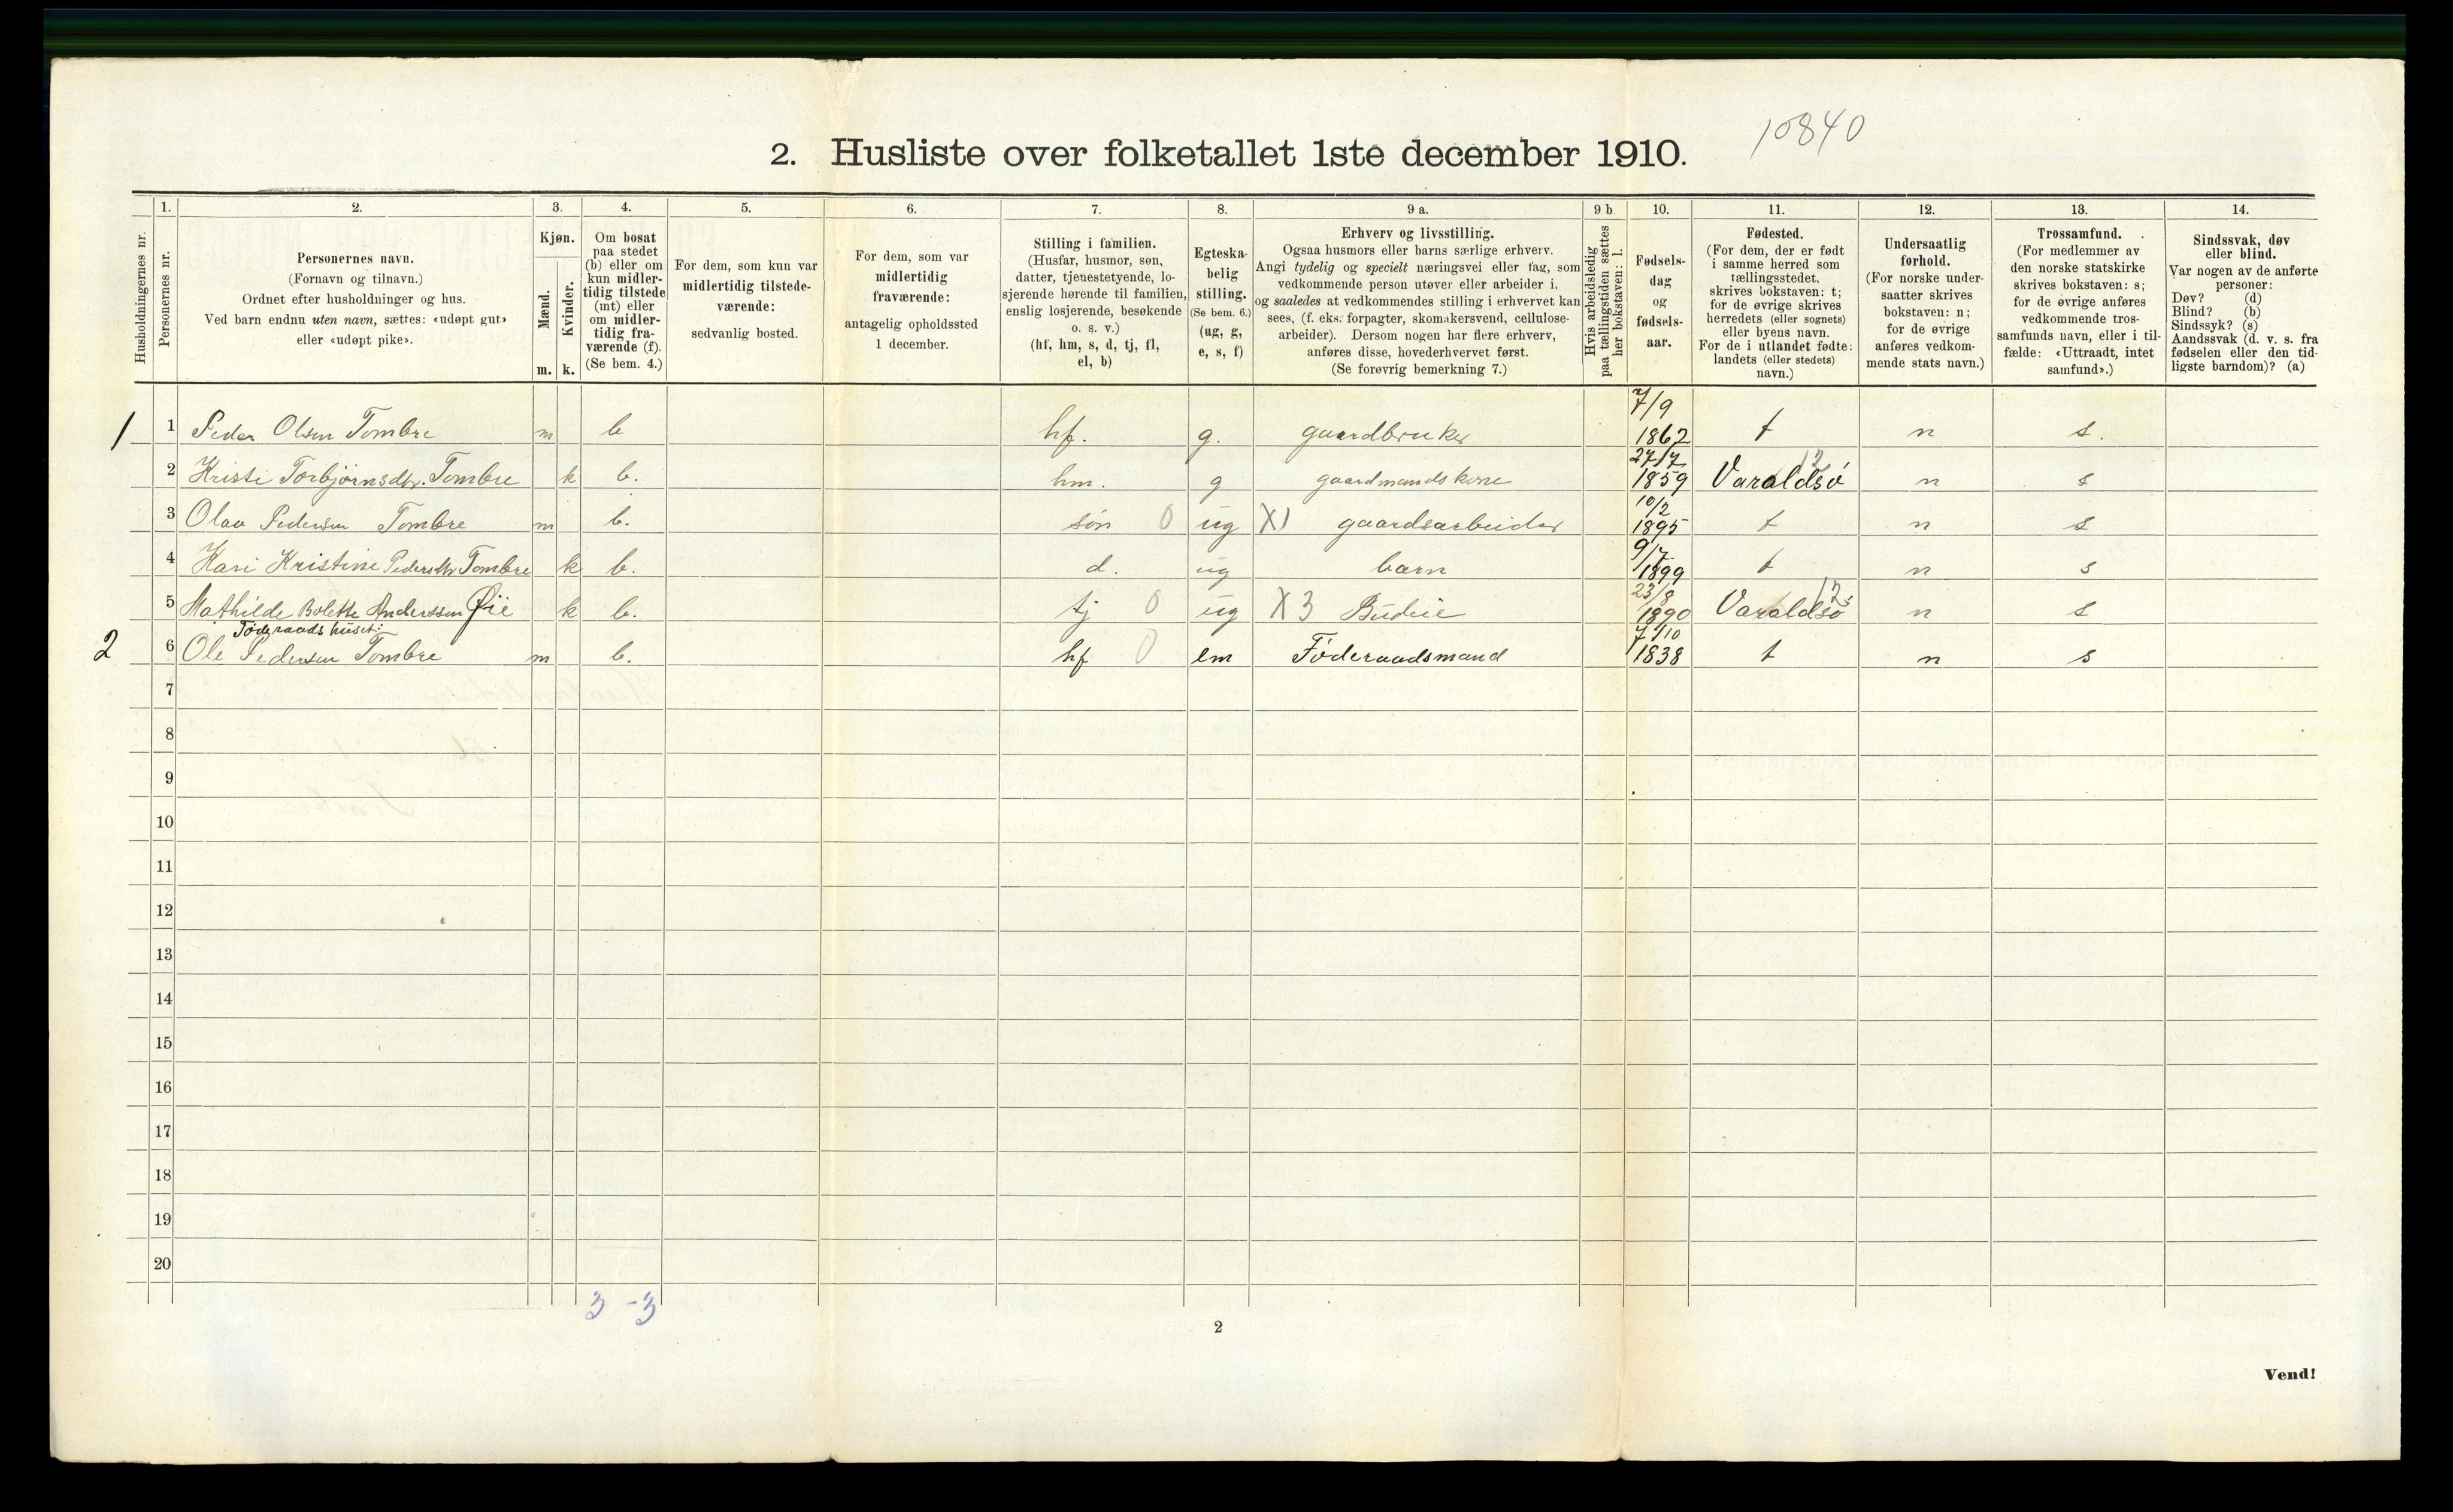 10840
2. Husliste over folketallet 1ste december 1910.
Husholdningernes nr.
1.
Personernes nr.
2.
Personernes navn.
(Fornavn og tilnavn.)
Ordnet efter husholdninger og hus.
Ved barn endnu uten navn, sættes: «udøpt gut»
eller «udøpt pike».
3.
Kjøn.
Mænd.
Kvinder.
m. k.
4.
Om bosat
paa stedet
(b) eller om
kun midler-
tidig tilstede
(mt) eller
om midler-
tidig fra-
værende (f).
(Se bem. 4.)
5.
For dem, som kun var
midlertidig tilstede-
værende:
sedvanlig bosted.
6.
For dem, som var
midlertidig
fraværende:
antagelig opholdssted
1 december.
7.
Stilling i familien.
(Husfar, husmor, søn,
datter, tjenestetyende, lo-
sjerende hørende til familien,
enslig losjerende, besøkende
o. s. v.)
(hf, hm, s, d, tj, fl,
el, b)
8.
Egteska-
belig
stilling.
(Se bem. 6.)
(ug, g,
e, s, f)
9 a.
Erhverv og livsstilling.
Ogsaa husmors eller barns særlige erhverv.
Angi tydelig og specielt næringsvei eller fag, som
vedkommende person utøver eller arbeider i,
og saaledes at vedkommendes stilling i erhvervet kan
sees, (f. eks. forpagter, skomakersvend, cellulose-
arbeider). Dersom nogen har flere erhverv,
anføres disse, hovederhvervet først.
(Se forøvrig bemerkning 7.)
9 b.
Hvis arbeidsledig
paa tællingstiden sættes
her bokstaven: l.
10.
Fødsels-
dag
og
fødsels-
aar.
11.
Fødested.
(For dem, der er født
i samme herred som
tællingsstedet,
skrives bokstaven: t;
for de øvrige skrives
herredets (eller sognets)
eller byens navn.
For de i utlandet fødte:
landets (eller stedets)
navn.)
12.
Undersaatlig
forhold.
(For norske under-
saatter skrives
bokstaven: n;
for de øvrige
anføres vedkom-
mende stats navn.)
13.
Trossamfund.
(For medlemmer av
den norske statskirke
skrives bokstaven: s;
for de øvrige anføres
vedkommende tros-
samfunds navn, eller i til-
fælde: «Uttraadt, intet
samfund».)
14.
Sindssvak, døv
eller blind.
Var nogen av de anførte
personer:
Døv? (d)
Blind? (b)
Sindssyk? (s)
Aandssvak (d. v. s. fra
fødselen eller den tid-
ligste barndom)? (a)
1 1 Peder Olsen Tombre m b hf. g. gaardbruker 7/9 1862 t n s.
2 Kristi Torbjørnsdtr. Tombre k b. hm. g gaardmandskone 27/7 1859 Varaldsø 12 n s
3 Olav Pedersen Tombre m b. søn 0 ug X1 gaardsarbeider 10/2 1895 t n s
4 Kari Kristine Pedersdtr Tombre k b. d. ug barn 9/7 1899 t n s
5 Mathilde Bolette Anderssen Øie k b. tj 0 ug X3 Budeie 23/8 1890 Varaldsø 12 n s
Føderaadshuset:
2 6 Ole Pedersen Tombre m b. hf 0 em Føderaadsmand 7/10 1838 t n s
7
8
9
10
11
12
13
14
15
16
17
18
19
20
3 - 3
2
Vend!